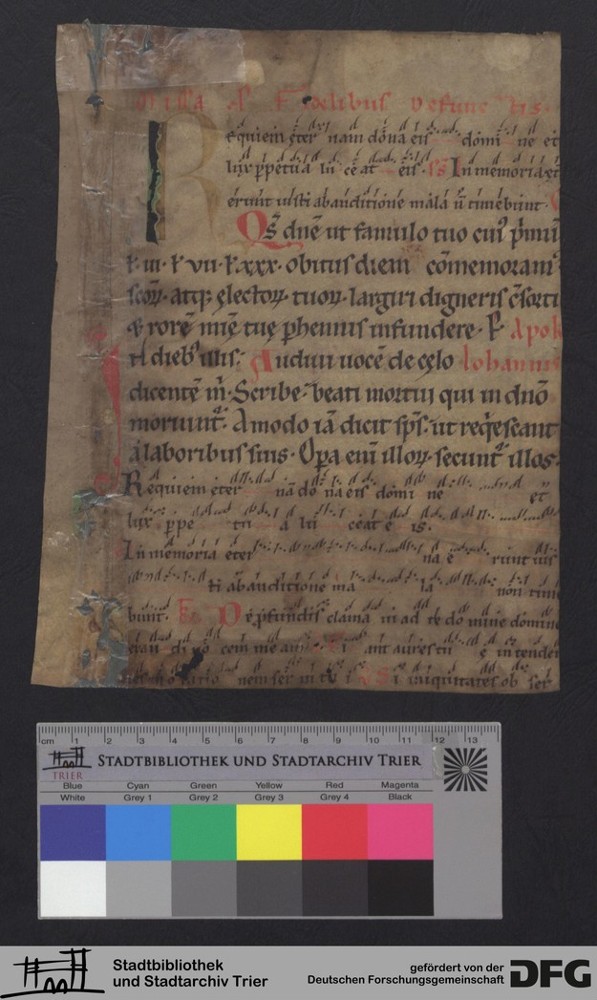 Missa p̄ Fidelibus defunctis.
Requiem ęter nam dona eis domi ne et
lux ppetua lu ce at eis. Ps In memoria et
erunt iusti ab auditione mala ñ timebunt.
Qs dñe ut famulo tuo cui' p̄mū
t̃ .III. t̃ VII. t̃ XXX. obitus diem cōmemoram'
scōꝝ atq; ęlectoꝝ tuoꝝ largiri digneris c̄sorti
rorē mię tuę phennis infundere. P̄ Apok
dieb' illis. Audiui uocē de cęlo Iohannis
dicentē m̄. Scribe beati mortui qui in dnō
moriunt̃. Amodo iā dicit sps. ut reqescant
a laboribus suis. Opa eni illoꝝ secunt̃ illos.
Requiem eter nā do na eis domi ne et
lux ppe tu a lu ceat e is.
In memoria eter na e runt ius
ti ab auditione ma la non tim
bunt. De pfundis clamaui ad te do mine domine
cem me am. Fi ant aures tu ę in tenden
nem ser ui tu i Si iniquitates ob ser
cm 1 2 3 4 5 6 7 8 9 10 11 12 13
TRIER
STADTBIBLIOTHEK UND STADTARCHIV TRIER
Blue Cyan Green Yellow Red Magenta
White Grey 1 Grey 2 Grey 3 Grey 4 Black
Stadtbibliothek
und Stadtarchiv Trier
gefördert von der
Deutschen Forschungsgemeinschaft
DFG